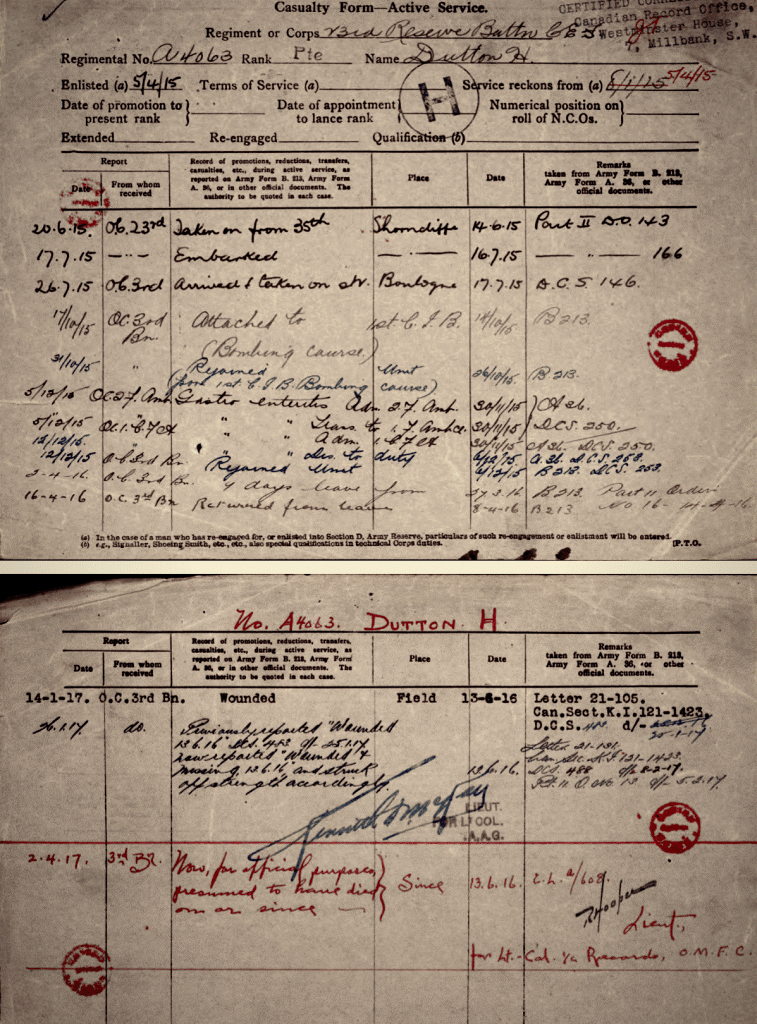 Casualty Form—Active Service.
CERTIFIED
Canadian Record Office,
Westminster House,
7, Millbank, S.W.
Regiment or Corps 23rd Reserve Battn C E F
Regimental No. A4063 Rank Pte Name Dutton H.
Enlisted (a) 5/4/15 Terms of Service (a) Service reckons from (a) 5/4/15
H
Date of promotion to present rank } Date of appointment to lance rank } Numerical position on roll of N.C.Os. }
Extended Re-engaged Qualification (b)
Report
Date From whom received Record of promotions, reductions, transfers, casualties, etc., during active service, as reported on Army Form B. 213, Army Form A. 36, or in other official documents. The authority to be quoted in each case. Place Date Remarks taken from Army Form B. 213, Army Form A. 36, or other official documents.
20.6.15. O.C. 23rd Taken on from 35th Shorncliffe 14.6.15 Part II D.O. 143
17.7.15 — " — Embarked 16.7.15 — " — 166
26.7.15 O.C. 3rd Arrived & taken on str. Boulogne 17.7.15 D.C.S. 146.
17/10/15 O.C. 3rd Bn. Attached to 1st C.I.B. 14/10/15 B 213.
(Bombing course)
31/10/15 " (Rejoined Unit 26/10/15 B 213.
from 1st C.I.B. Bombing course)
5/12/15 O.C. 2 F. Amb. Gastro enteritis Adm 2 F. Amb. 30/11/15 } A 36.
5/12/15 O.C. 1. C. F. A " " Trans to 1. F. Ambce. 30/11/15 } DCS. 250.
12/12/15 " " " Adm. 1 C F A 30/11/15 A 36. DCS. 250.
12/12/15 O.C. 3rd Bn " " Dis. to duty 4/12/15. A. 36. D.C.S. 253.
Rejoined Unit 4/12/15 B 213. DCS. 253.
2-4-16. O.C. 3rd Bn. 7 days leave from 27.3.16 B 213. Part 11 Orders
16-4-16 O.C. 3rd Bn Returned from leave 8-4-16 B 213 No. 16-
(a) In the case of a man who has re-engaged for, or enlisted into Section D, Army Reserve, particulars of such re-engagement or enlistment will be entered.
(b) e.g., Signaller, Shoeing Smith, etc., etc., also special qualifications in technical Corps duties. [P.T.O.
No. A4063. DUTTON H
Report
Date From whom received Record of promotions, reductions, transfers, casualties, etc., during active service, as reported on Army Form B. 213, Army Form A. 36, or in other official documents. The authority to be quoted in each case. Place Date Remarks taken from Army Form B. 213, Army Form A. 36, or other official documents.
14-1-17. O.C.3rd Bn. Wounded Field 13-6-16 Letter 21-105.
Can.Sect.K.I.121-1423.
D.C.S. 483 d/- 25-1-17
26.1.17 do. Previously reported "Wounded
13.6.16" 483 25.1.17 Letter 21-131
now reported "Wounded & Can Sec. K.I. 121-1423.
missing 13.6.16" and struck 13.6.16. DCS. 488 8-2-17.
off strength accordingly. Pt. 11 O. No 13 5-2-17.
LIEUT.
FOR LT COL.
A.A.G.
2.4.17. 3rd Bn. Now, for official purposes,
presumed to have died } Since 13.6.16. C.L. a/608.
on or since —
Hooper
Lieut,
for Lt.-Col. i/c Records, O.M.F.C.